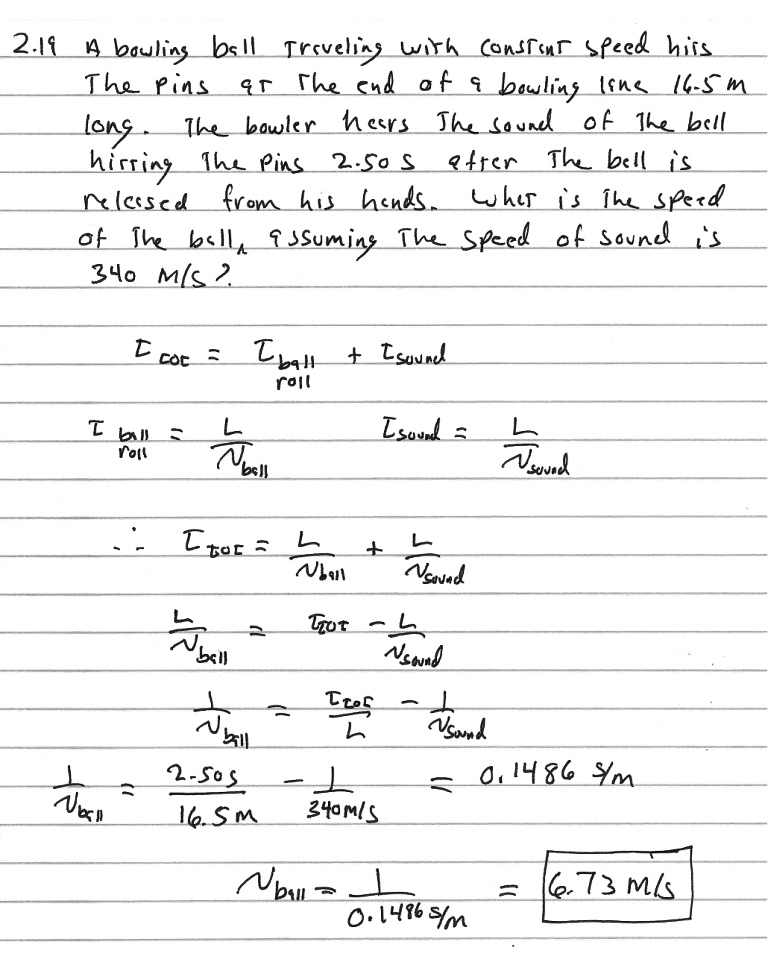 2.19 A bowling ball traveling with constant speed hits
the pins at the end of a bowling lane 16.5 m
long. The bowler hears the sound of the ball
hitting the pins 2.50 s after the ball is
released from his hands. What is the speed
of the ball, assuming the speed of sound is
340 m/s?
t tot = t ball roll + t sound
t ball roll = L / v ball    t sound = L / v sound
∴ t tot = L / v ball + L / v sound
L / v ball = t tot - L / v sound
1 / v ball = t tot / L - 1 / v sound
1 / v ball = 2.50 s / 16.5 m - 1 / 340 m/s = 0.1486 s/m
v ball = 1 / 0.1486 s/m = 6.73 m/s